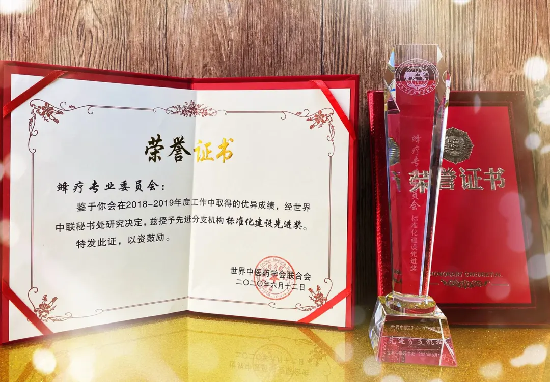 荣誉证书
蜂疗专业委员会:
鉴于你会在2018-2019年度工作中取得的优异成绩,经世界
中联秘书处研究决定,兹授予先进分支机构标准化建设先进奖。
特发此证,以资鼓励。
世界中医药学会联合会
二〇二〇年六月十二日
蜂疗专业委员会
标准化建设先进奖
先进分支机构
荣誉证书